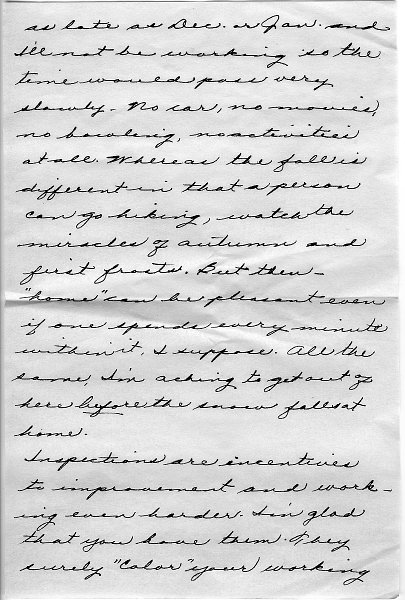 as late as Dec. or Jan. and
I'll not be working so the
time would pass very
slowly. No car, no movies,
no bowling, no activities
at all. Whereas the fall is
different in that a person
can go hiking, watch the
miracles of autumn and
first frosts. But then -
"home" can be pleasant even
if one spends every minute
within it, I suppose. All the
same, I'm aching to get out of
here before the snow falls at
home.
Inspections are incentives
to improvement and work-
ing even harder. I'm glad
that you have them. They
surely "color" your working